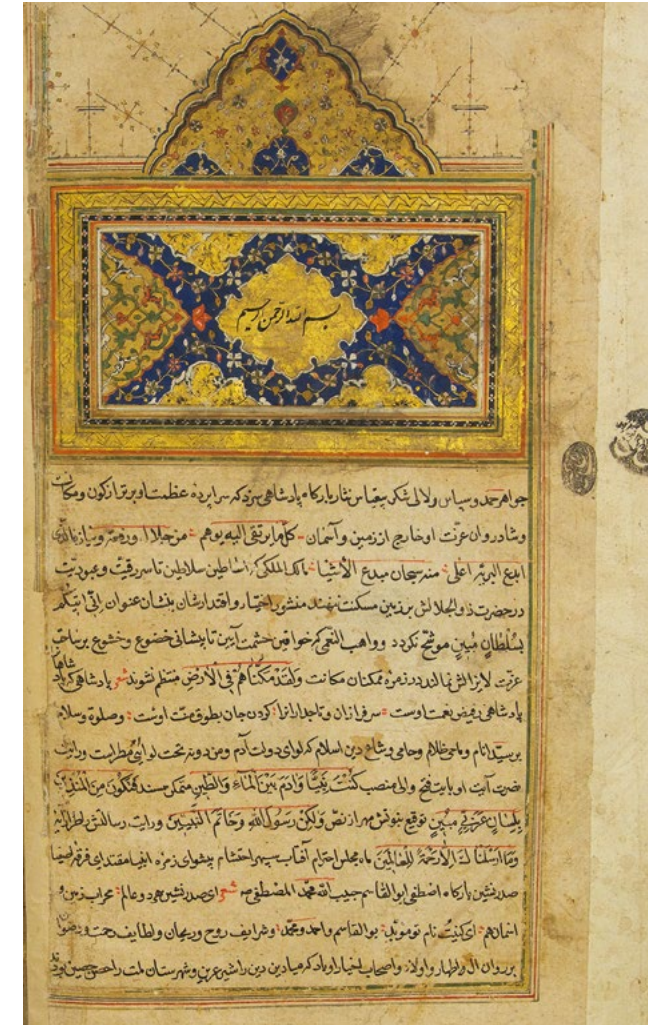 بسم الله الرحمن الرحيم
جواهر حمد و سپاس و لالی شکر بیقیاس نثار بارکاه پادشاهی سزد که سراپرده عظمت او برتر از کون و مکانست
و شادروان عزت او خارج از زمین و آسمان کل ما یرتقی الیه بوهم من جلال و رفعة و
ابدع البریه اعلی منه سبحان مبدع الأشیا مالک الملکی که اساطین سلاطین تا سر رقیت و عبودیت
در حضرت ذو الجلالش بر زمین مسکنت ننهند منشور اختیار و اقتدارشان بنشان عنوان إنی آتیکم
بسلطان مبین موشح نکردد و واهب النعمی که خواقین حشمت آیین تا پیشانی خضوع و خشوع بر ساحت
عزت لایزالش نمالند در زمره ممکنان مکانت ولقد مکناهم فی الأرض منتظم نشوند شعر پادشاهی که پادشاها
پادشاهی ز فیض نعمت اوست سرفرازان و تاجداران را کردن جان بطوق منت اوست و صلوة و سلام
بر سید انام و ماحی ظلام و حامی دین اسلام که لوای دولت آدم و من دونه تحت لوائی مطرا یت و رایت
آیت او بایت فتح والی منصب کنت نبیا وآدم بین الماء والطین متمکن مسند فتکون من المنذرین
بلسان عربی مبین توقیع نبوتش مهر از نص ولکن رسول الله وخاتم النبیین و رایت رسالتش
وما ارسلناک الا رحمة للعالمین ماه مجلس احترام آفتاب سپهر احتشام پیشوای زمره انبیا مقتدای فرقه اصفیا
صدر نشین بارکاه اصطفی ابو القاسم حبیب الله محمد المصطفی شعر ای صدر نشین هر دو عالم محراب زمین و
آسمان هم ای کنیت نام تو موبد بو القاسم و احمد و محمد و شرایف روح و ریحان و لطایف رحمت و رضوان
بر روان آل اطهار و اولاد و اصحاب اخیار او باد که میادین دین را شیر عرین و شهرستان ملت را حصن حصین بودند